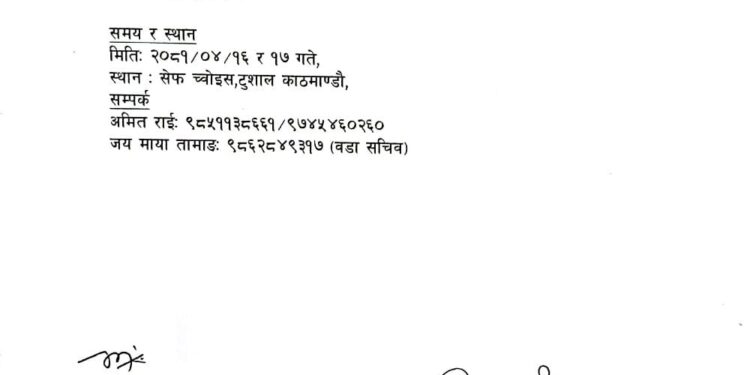 समय र स्थान
मितिः २०८१/०४/१६ र १७ गते,
स्थान : सेफ च्वोइस,टुशाल काठमाण्डौ,
सम्पर्क
अमित राईः ९८५११३८६६१/९७४५४६०२६०
जय माया तामाङः ९८६२८४९३१७ (वडा सचिव)